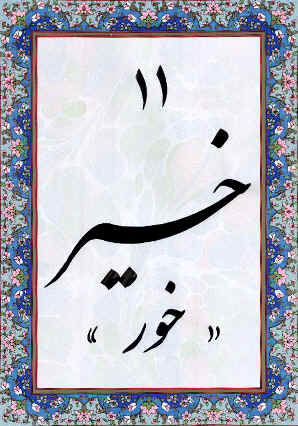 ۱۱
خیر
« خور »